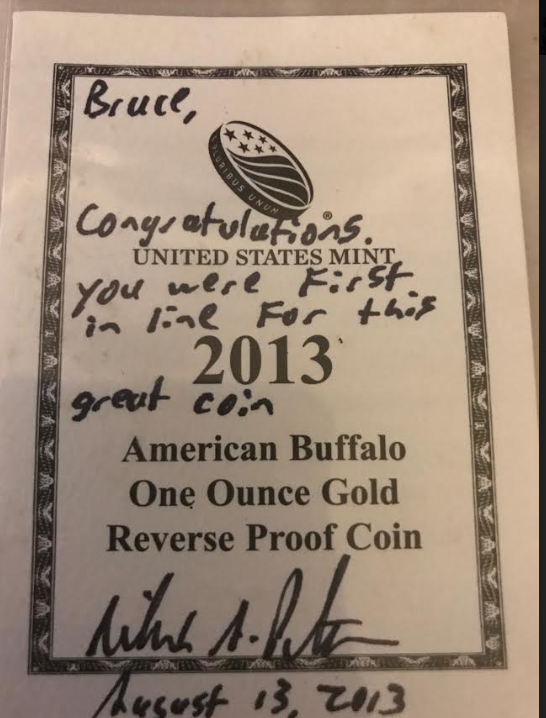 Bruce,
PLURIBUS UNUM
Congratulations.
®
UNITED STATES MINT
you were First
in line For this
2013
great coin
American Buffalo
One Ounce Gold
Reverse Proof Coin
August 13, 2013